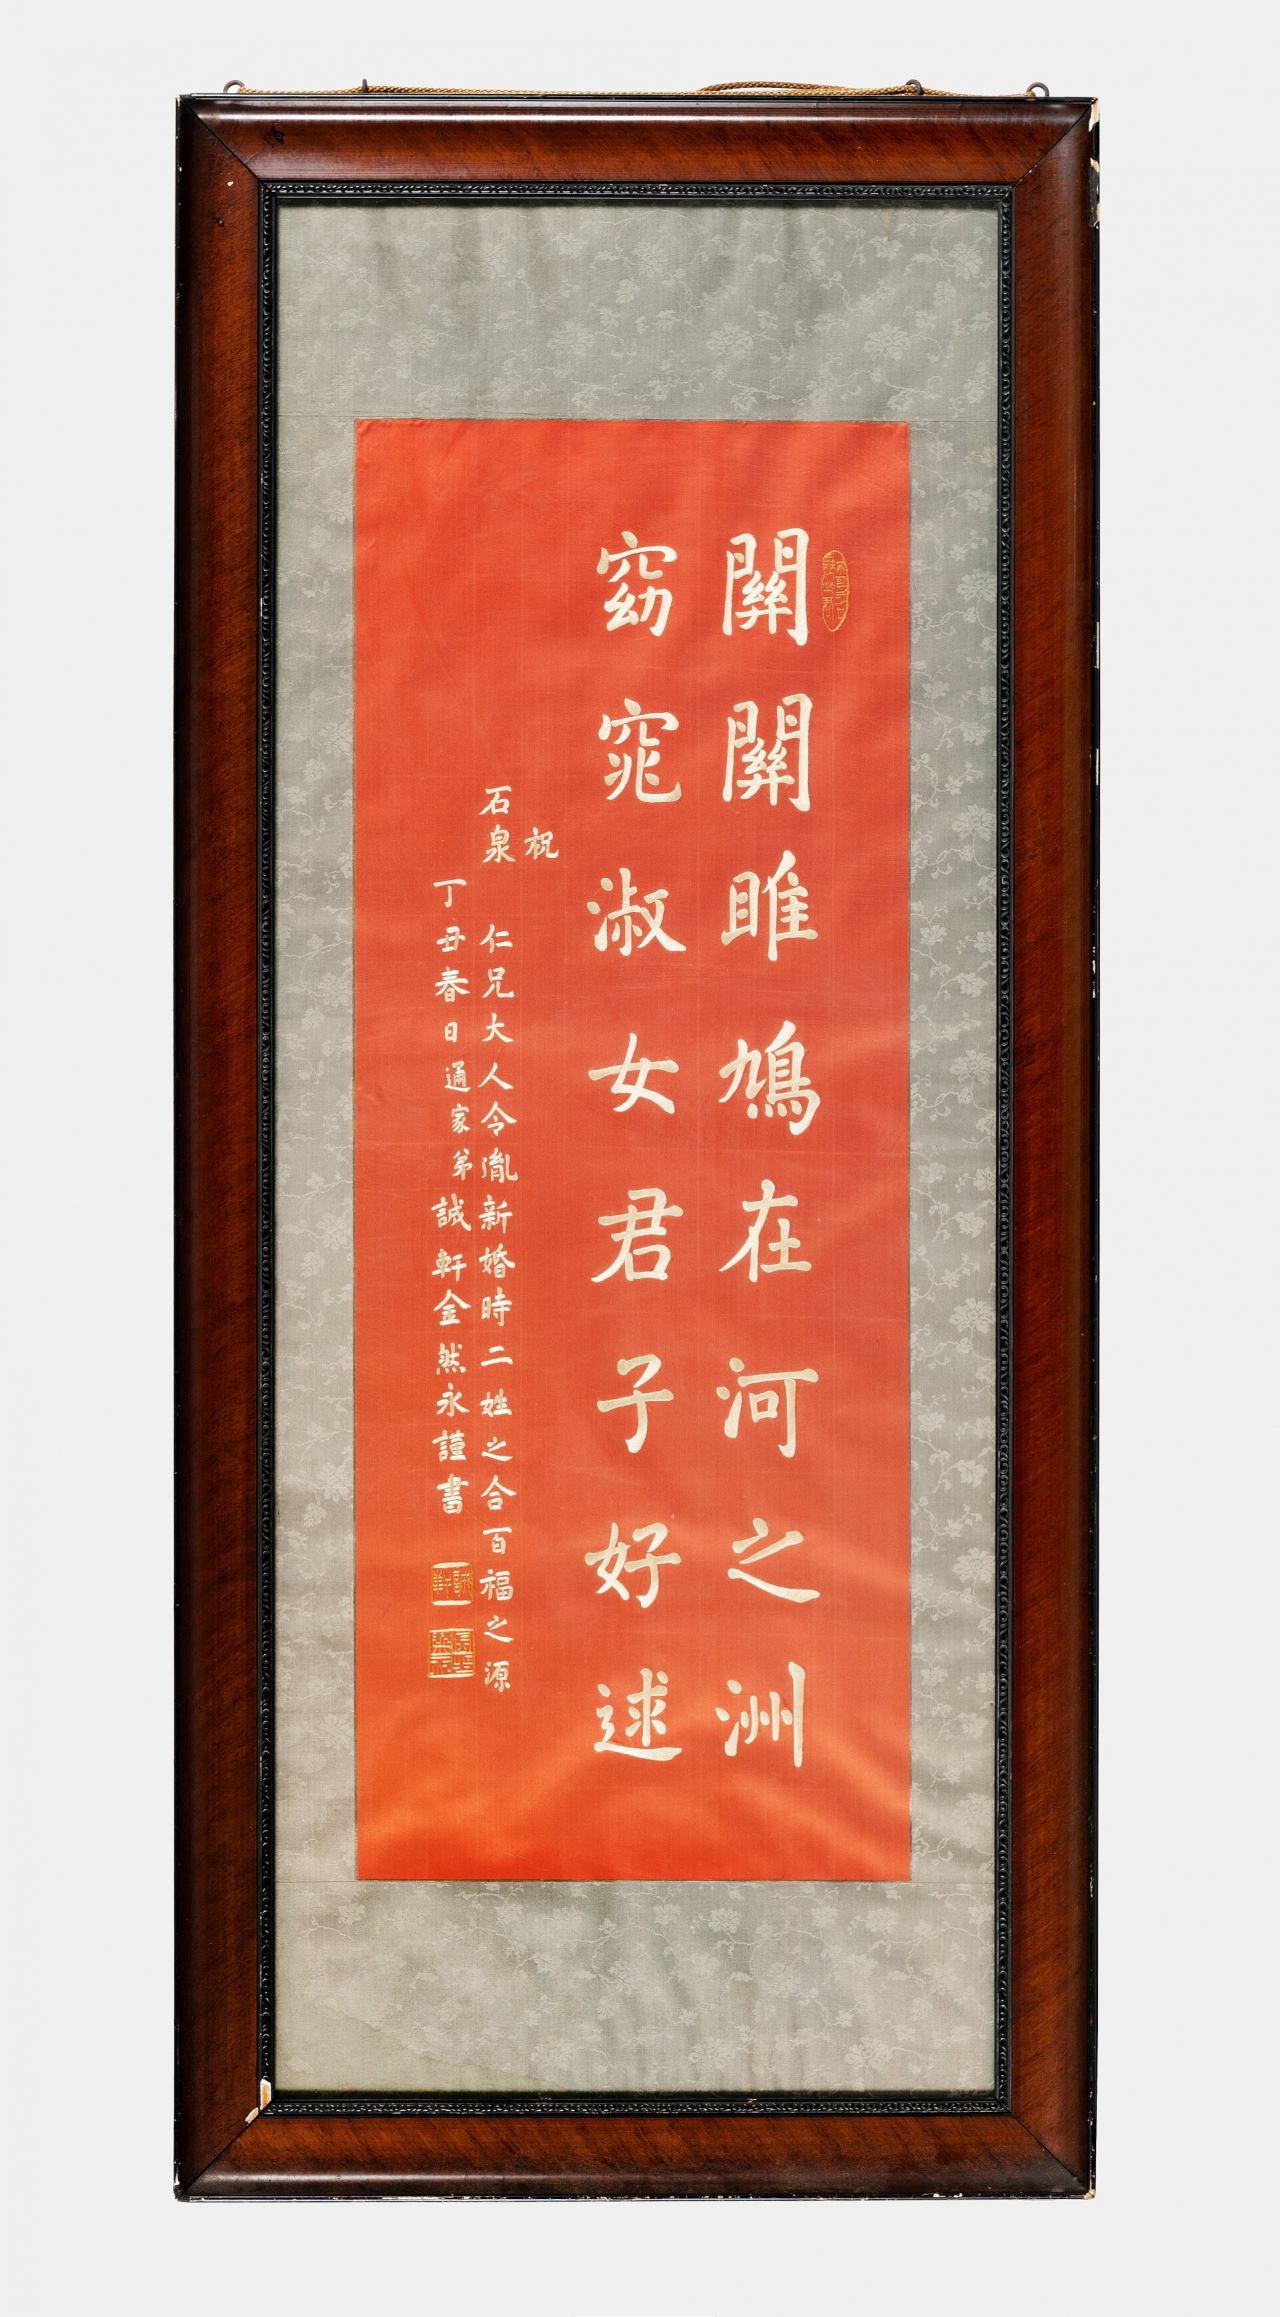 關關雎鳩在河之洲
窈窕淑女君子好逑
祝
石泉仁兄大人令胤新婚時二姓之合百福之源
丁丑春日通家弟誠軒金然永謹書
誠軒